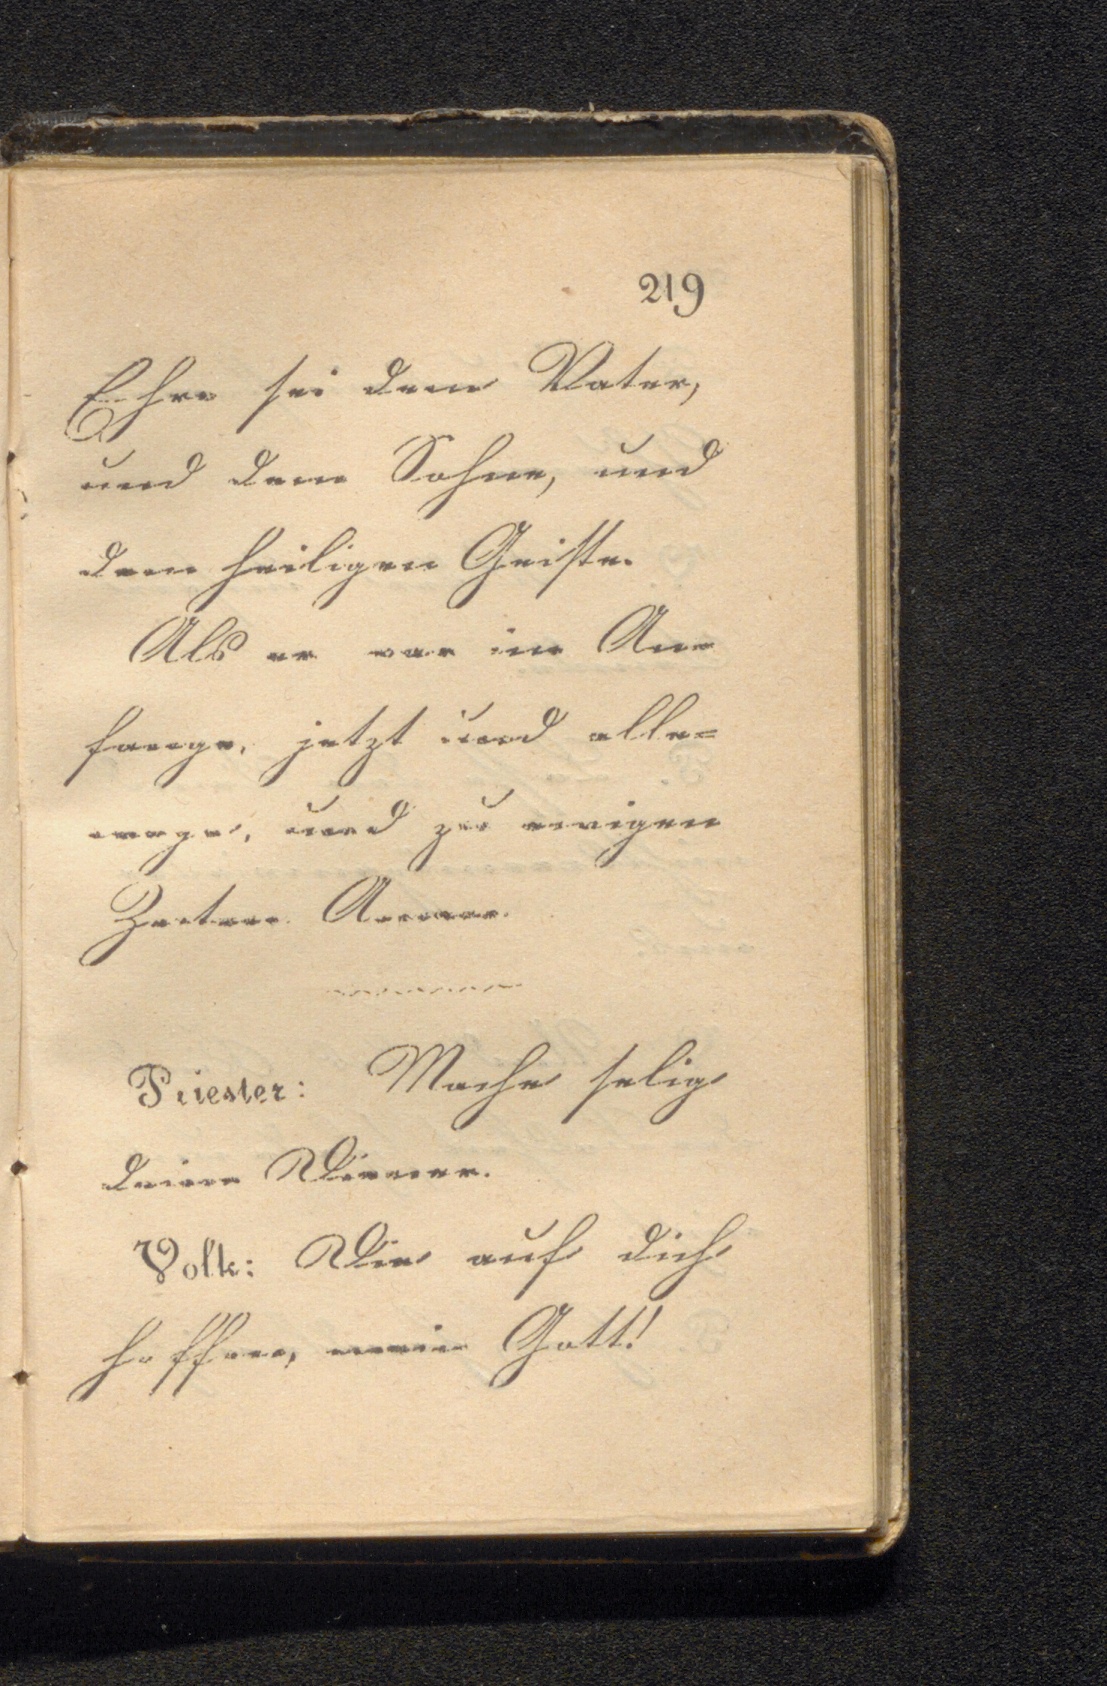 219
Ehre sei dem Vater,
und dem Sohne, und
dem heiligen Geiste.
Als er war im An
fange, jetzt und alle=
wege, und zu ewigen
Zeiten. Amen.
Priester: Mache selig
deine Diener.
Volk: Die auf dich
hoffen, mein Gott!